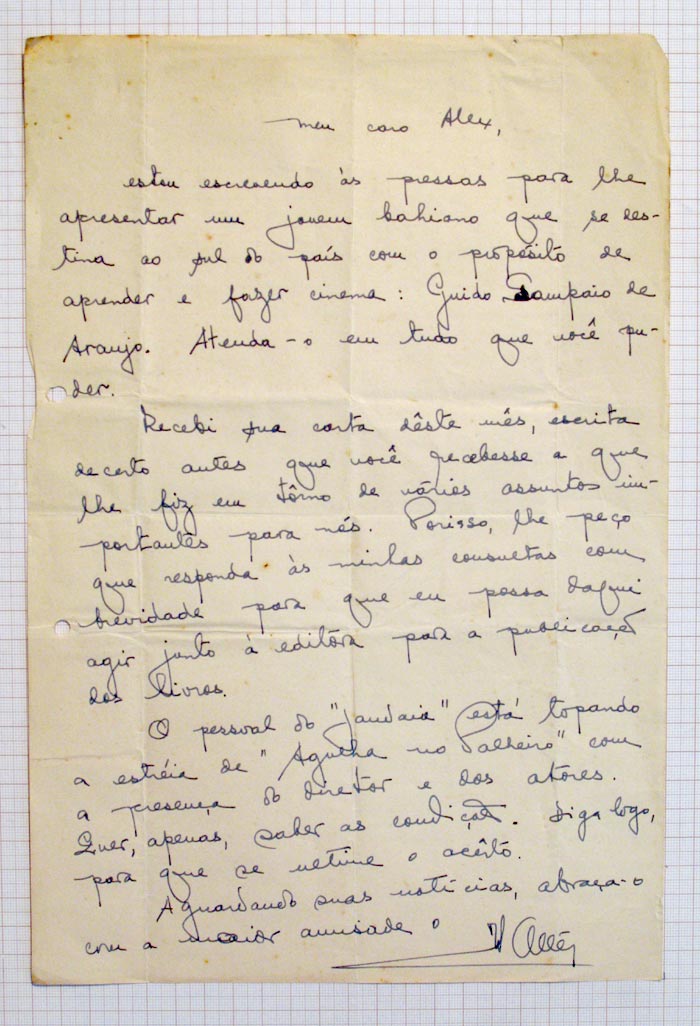 Meu caro Alex,
estou escrevendo às pressas para lhe
apresentar um jovem bahiano que se des-
tina ao sul do país com o propósito de
aprender e fazer cinema: Guido Sampaio de
Araujo. Atenda-o em tudo que você pu-
der.
Recebi sua carta dêste mês, escrita
decerto antes qque você recebesse a que
lhe fiz em tôrno de vários assuntos im-
portantes para nós. Porisso, lhe peço
que responda às minhas consultas com
brevidade para que eu possa daqui
agir junto à editôra para a publicação
dos livros.
O pessoal do "Jandaia" está topando
a estréia de "Agulha no Palheiro" com
a presença do diretor e dos atores.
Quer, apenas, saber as condições. Diga logo,
para que se ultime o acêrto.
Aguardando suas notícias, abraça-o
com a maior amisade o